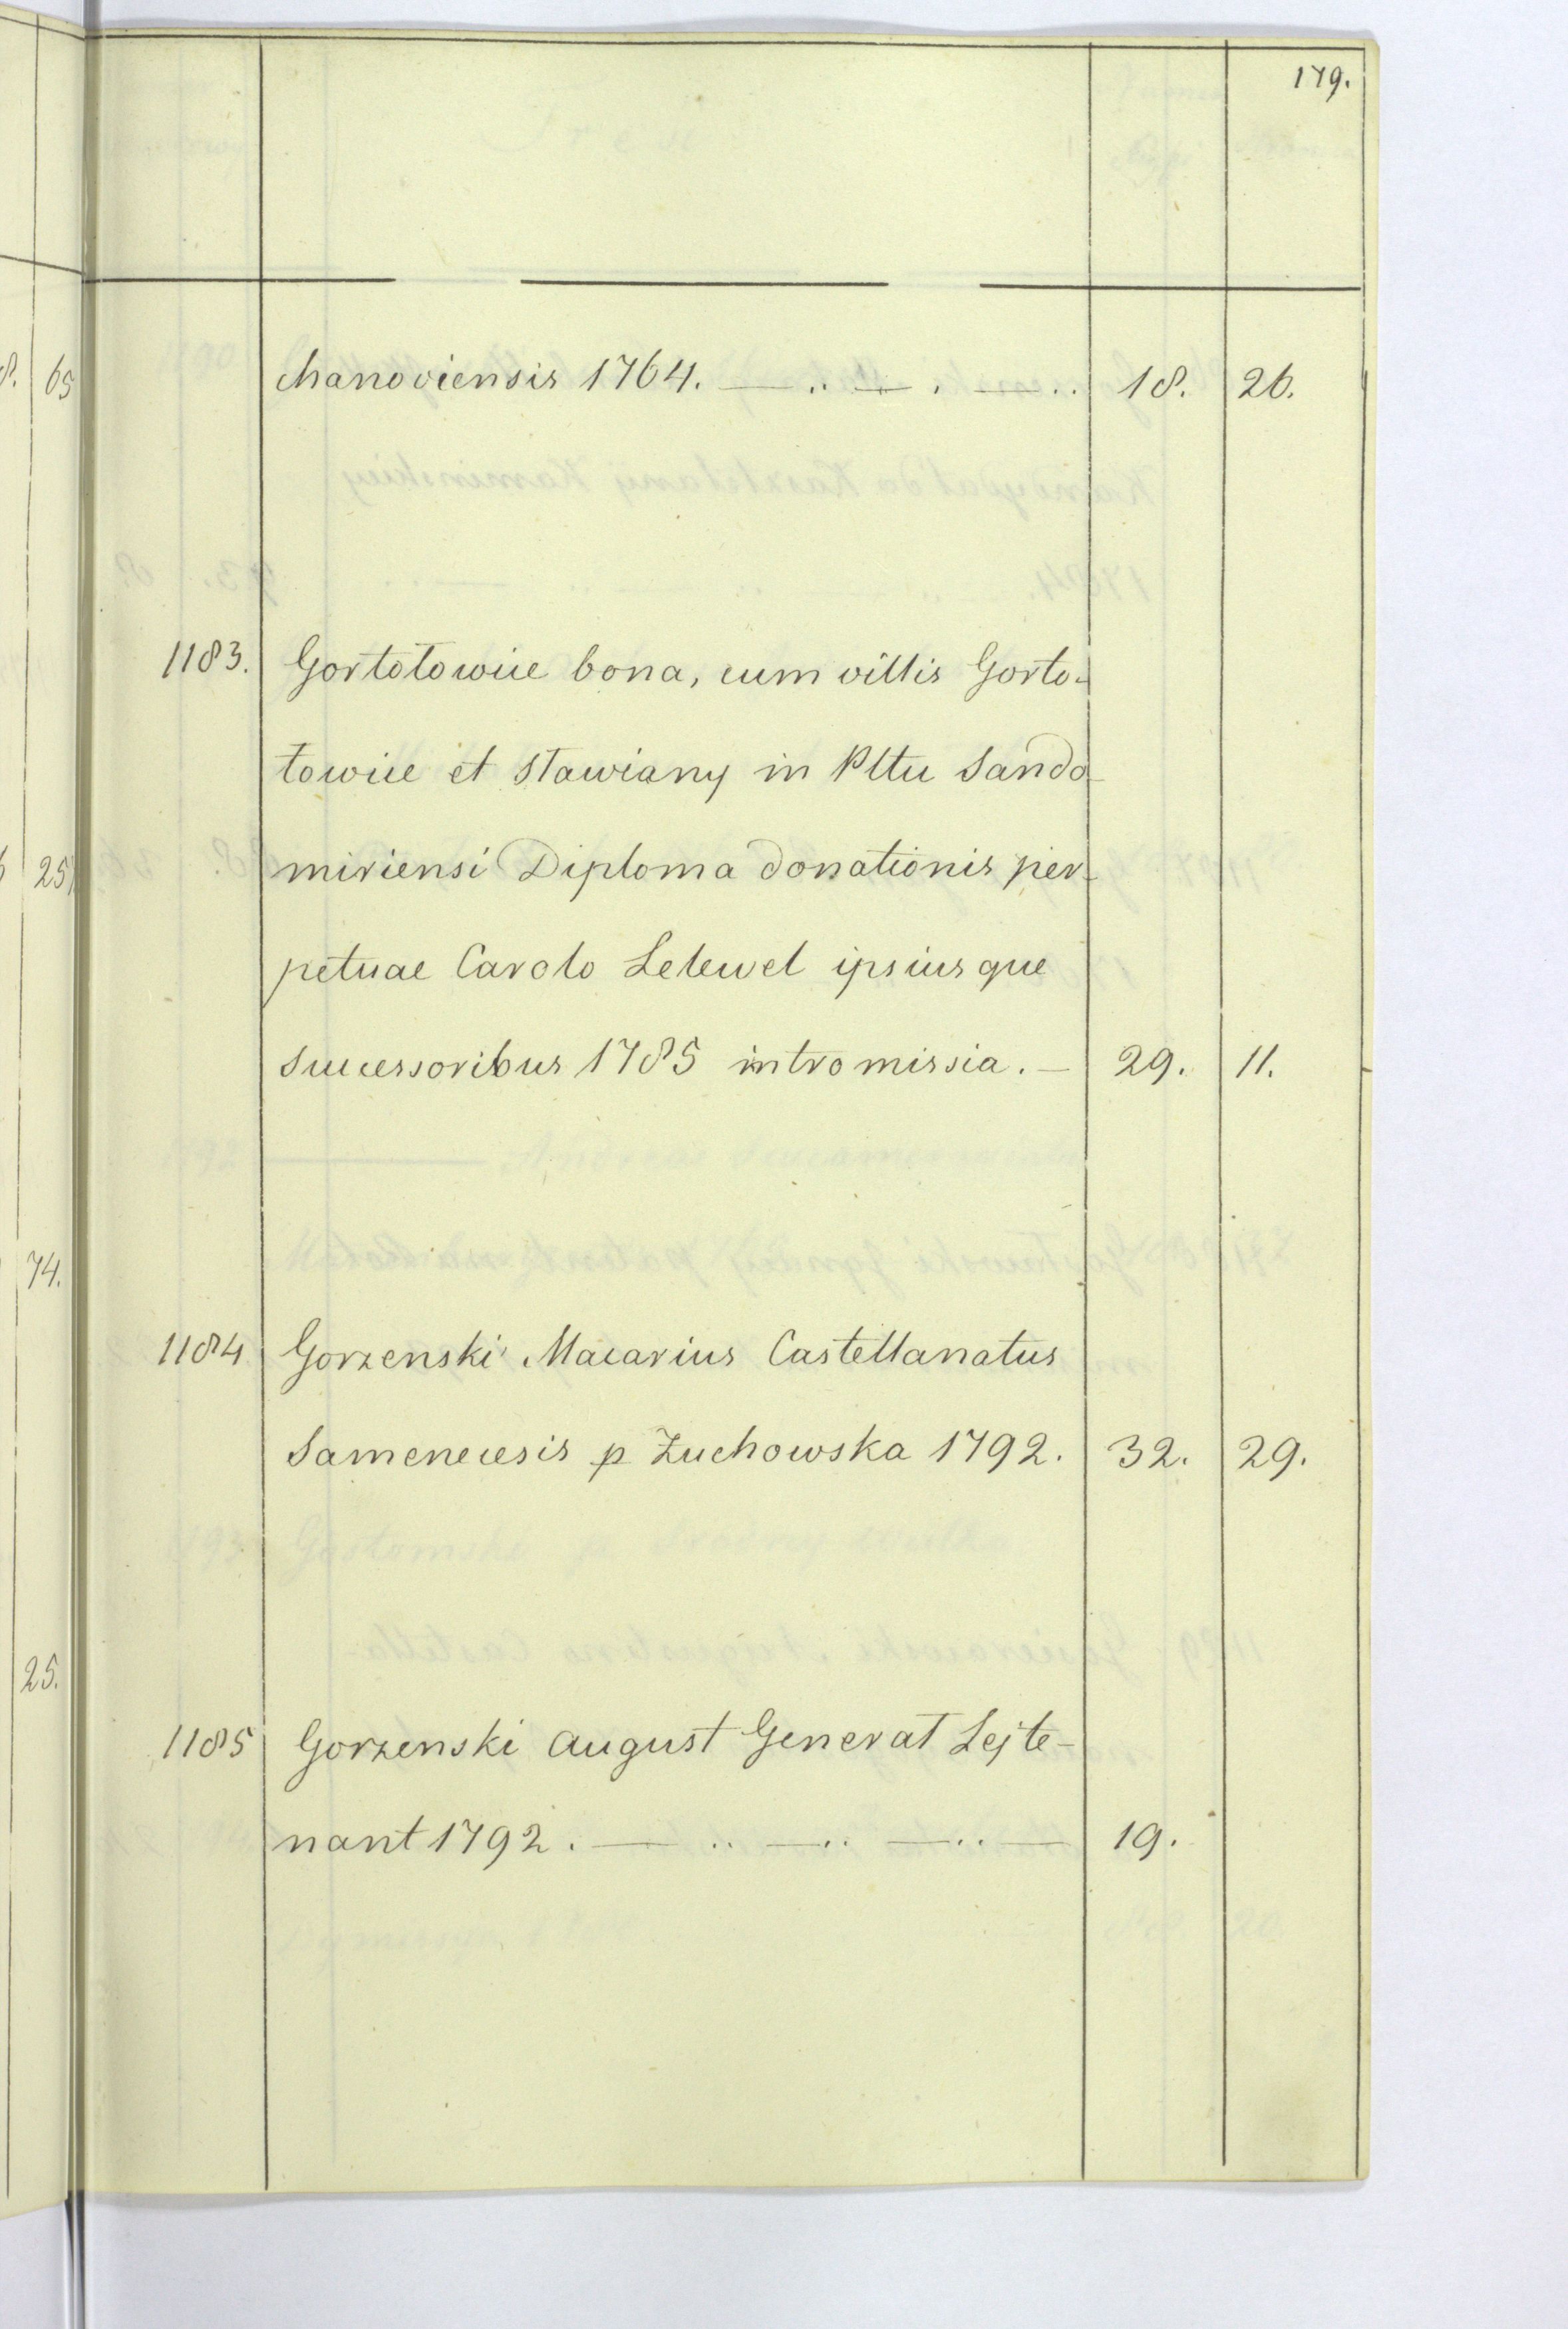 179.
chanoviensis 1764. — .. — . — .. 18. 26.
1183. Gortołowice bona, cum villis Gorto-
łowice et Sławiany in Pltu Sando-
miriensi Diploma donationis per-
petuae Carolo Lelewel ipsiusque
successoribus 1785 intromissia. — 29. 11.
1184 Gorzenski Macarius Castellanatus
Samenecesis p Zuchowska 1792. 32. 29.
1185 Gorzenski August Generał Lejte-
nant 1792. — .. — .. — .. — 19.
65
25
74.
25.